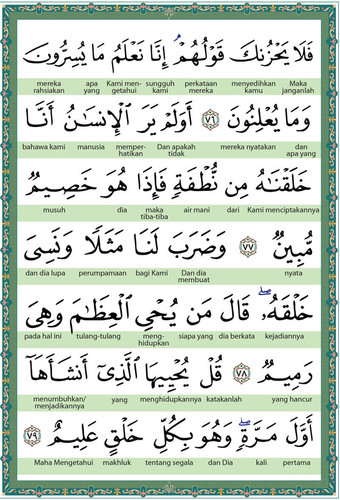 فَلَا يَحْزُنكَ قَوْلُهُمْ ۘ إِنَّا نَعْلَمُ مَا يُسِرُّونَ
Maka janganlah menyedihkan kamu perkataan mereka sungguh kami Kami men-getahui apa yang mereka rahsiakan
وَمَا يُعْلِنُونَ ٧٦ أَوَلَمْ يَرَ الْإِنسَٰنُ أَنَّا
dan apa yang mereka nyatakan Dan apakah tidak memper-hatikan manusia bahawa kami
خَلَقْنَٰهُ مِن نُّطْفَةٍ فَإِذَا هُوَ خَصِيمٌ
Kami menciptakannya dari air mani maka tiba-tiba dia musuh
مُّبِينٌ ٧٧ وَضَرَبَ لَنَا مَثَلًا وَنَسِىَ
nyata Dan dia membuat bagi Kami perumpamaan dan dia lupa
خَلْقَهُۥ ۖ قَالَ مَن يُحْىِ الْعِظَٰمَ وَهِىَ
kejadiannya dia berkata siapa yang meng-hidupkan tulang-tulang pada hal ini
رَمِيمٌ ٧٨ قُلْ يُحْيِيهَا الَّذِىٓ أَنشَأَهَآ
yang hancur katakanlah menghidupkannya yang menumbuhkan/ menjadikannya
أَوَّلَ مَرَّةٍ ۖ وَهُوَ بِكُلِّ خَلْقٍ عَلِيمٌ ٧٩
pertama kali dan Dia tentang segala makhluk Maha Mengetahui